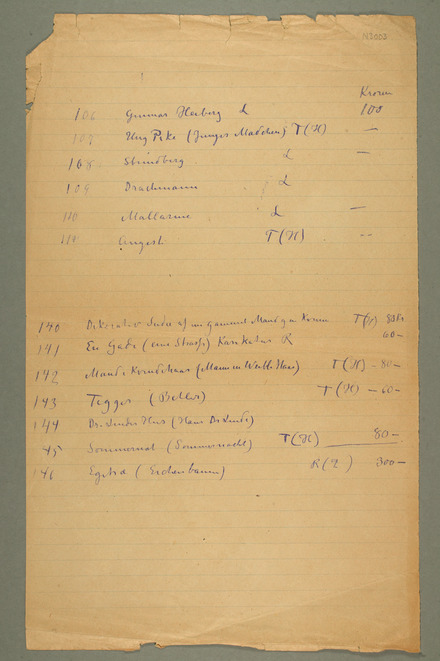 N 3003
Kronen
106 Gunnar Heiberg L 100
107 Ung Pike (Junges Madchen) T(H) —
108 Strindberg L —
109 Drachmann L
110 Mallarmé L —
Angst T(H) --
140 T(H) 80 Kr
141 En Gade (eine Strasse) Karikatur R 60—
142 (Mann u Weibb Haar) T(H) - 80—
143 Tegger (Bettler) T(H) - 60—
144 Dr. Lindes Hus (Haus Dr Linde)
145 Sommernat (Sommernacht) T(H) 80—
146 Egetræ (Eichenbaum) R(L) 300—